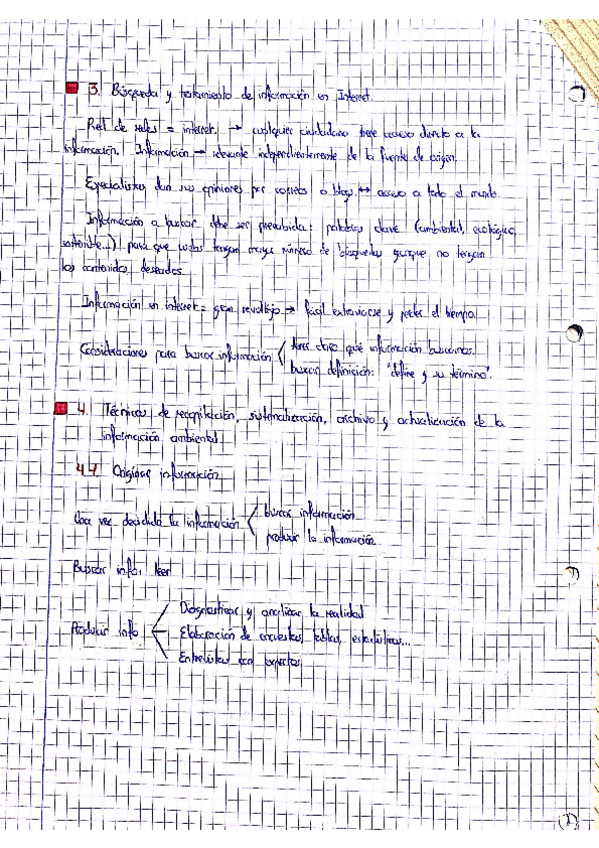 3. Búsqueda y tratamiento de información en Internet.
Red de redes = internet. → cualquier ciudadano tiene acceso directo a la
información. Información → relevante independientemente de la fuente de origen.
Especialistas dan sus opiniones por correos o blogs ↔ acceso a todo el mundo.
Información a buscar debe ser preconcebida: palabras clave (ambiental, ecológico,
sostenible...) para que webs tengan mayor número de búsquedas aunque no tengan
los contenidos deseados.
Información en internet = gran revoltijo → fácil extraviarse y perder el tiempo.
Consideraciones para buscar información
tener claro qué información buscamos.
buscar definición: "define y su término".
4. Técnicas de recopilación, sistematización, archivo y actualización de la
información ambiental.
4.1. Originar información
Una vez decidida la información
buscar información
producir la información
Buscar info: leer
Producir info
Diagnosticar y analizar la realidad
Elaboración de encuestas, tablas, estadísticas...
Entrevistas con expertos.